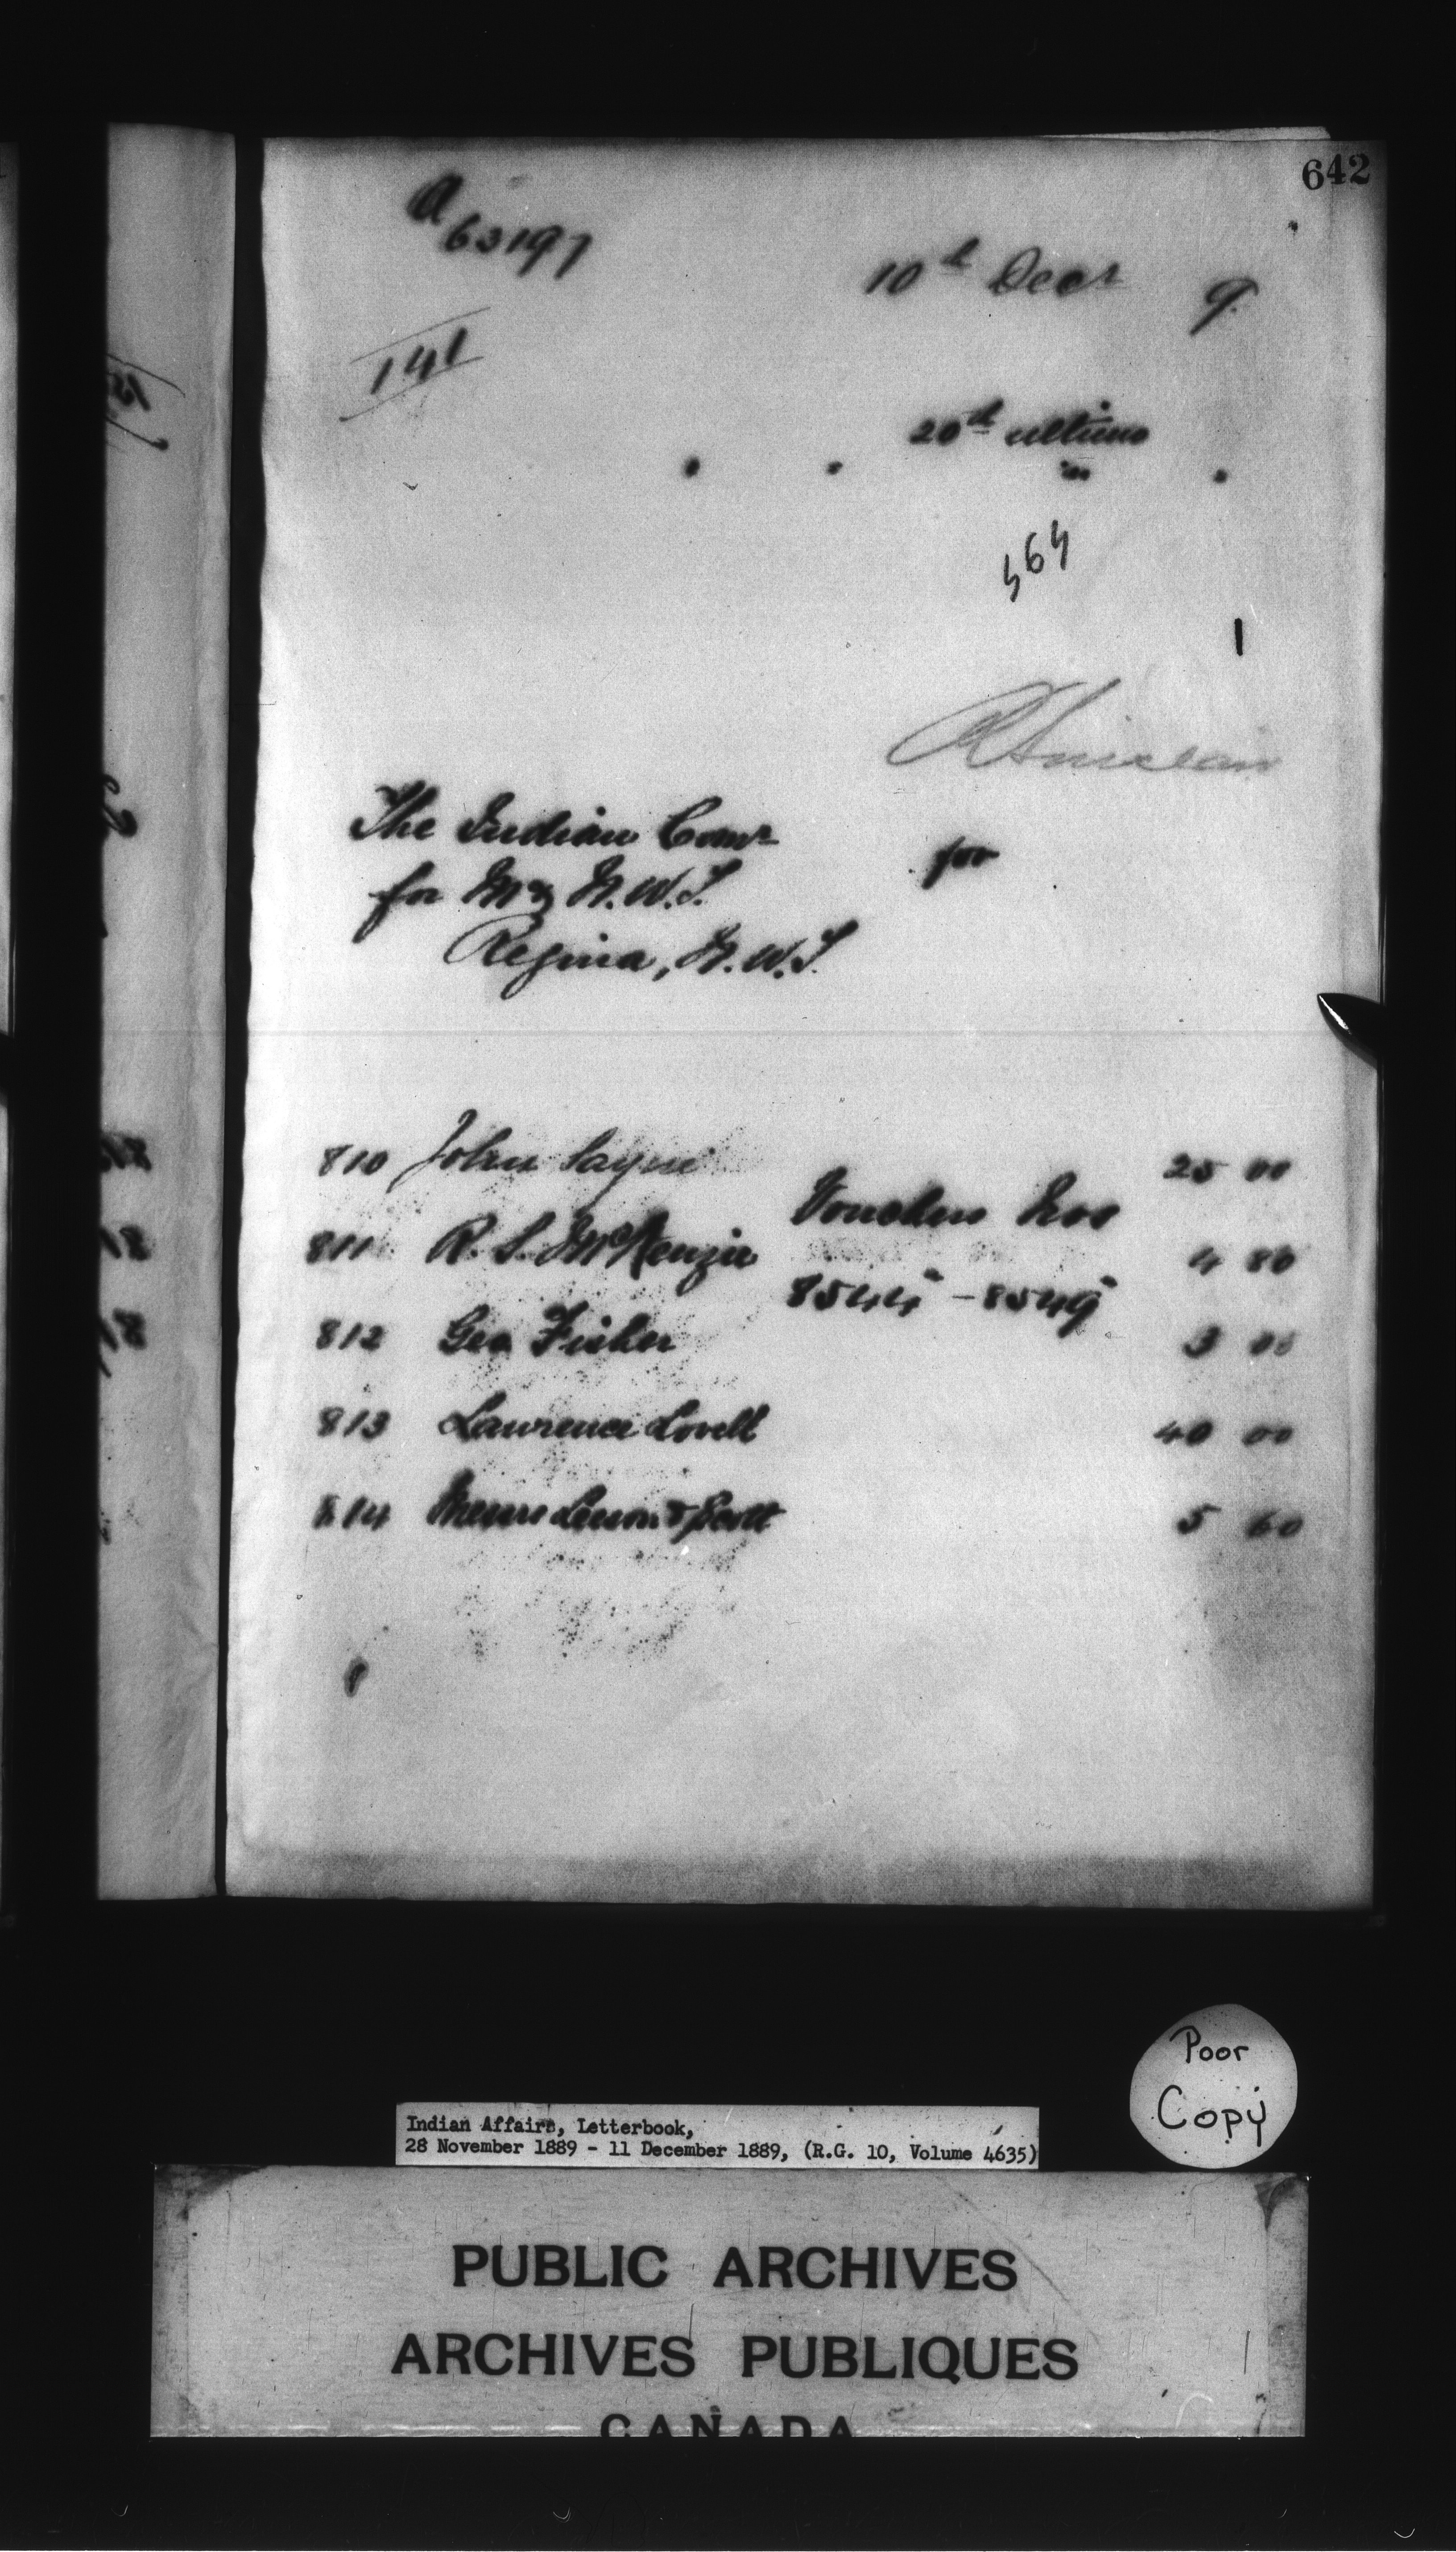 642
A
63197
10th Decr 9.
141
20th ultimo
464
1
R Sinclair
The Indian Comr
for
for M & N.W.T.
Regina, N.W.T.
810 John Sayne 25 00
Vouchers Nos
811 R. S. McKenzie 4 80
8544 - 8549
812 Geo Fisher 3 00
813 Lawrence Lovell 40 00
814 Messrs & Scott 5 60
Poor
Copy
Indian Affairs, Letterbook,
28 November 1889 - 11 December 1889, (R.G. 10, Volume 4635)
PUBLIC ARCHIVES
ARCHIVES PUBLIQUES
CANADA